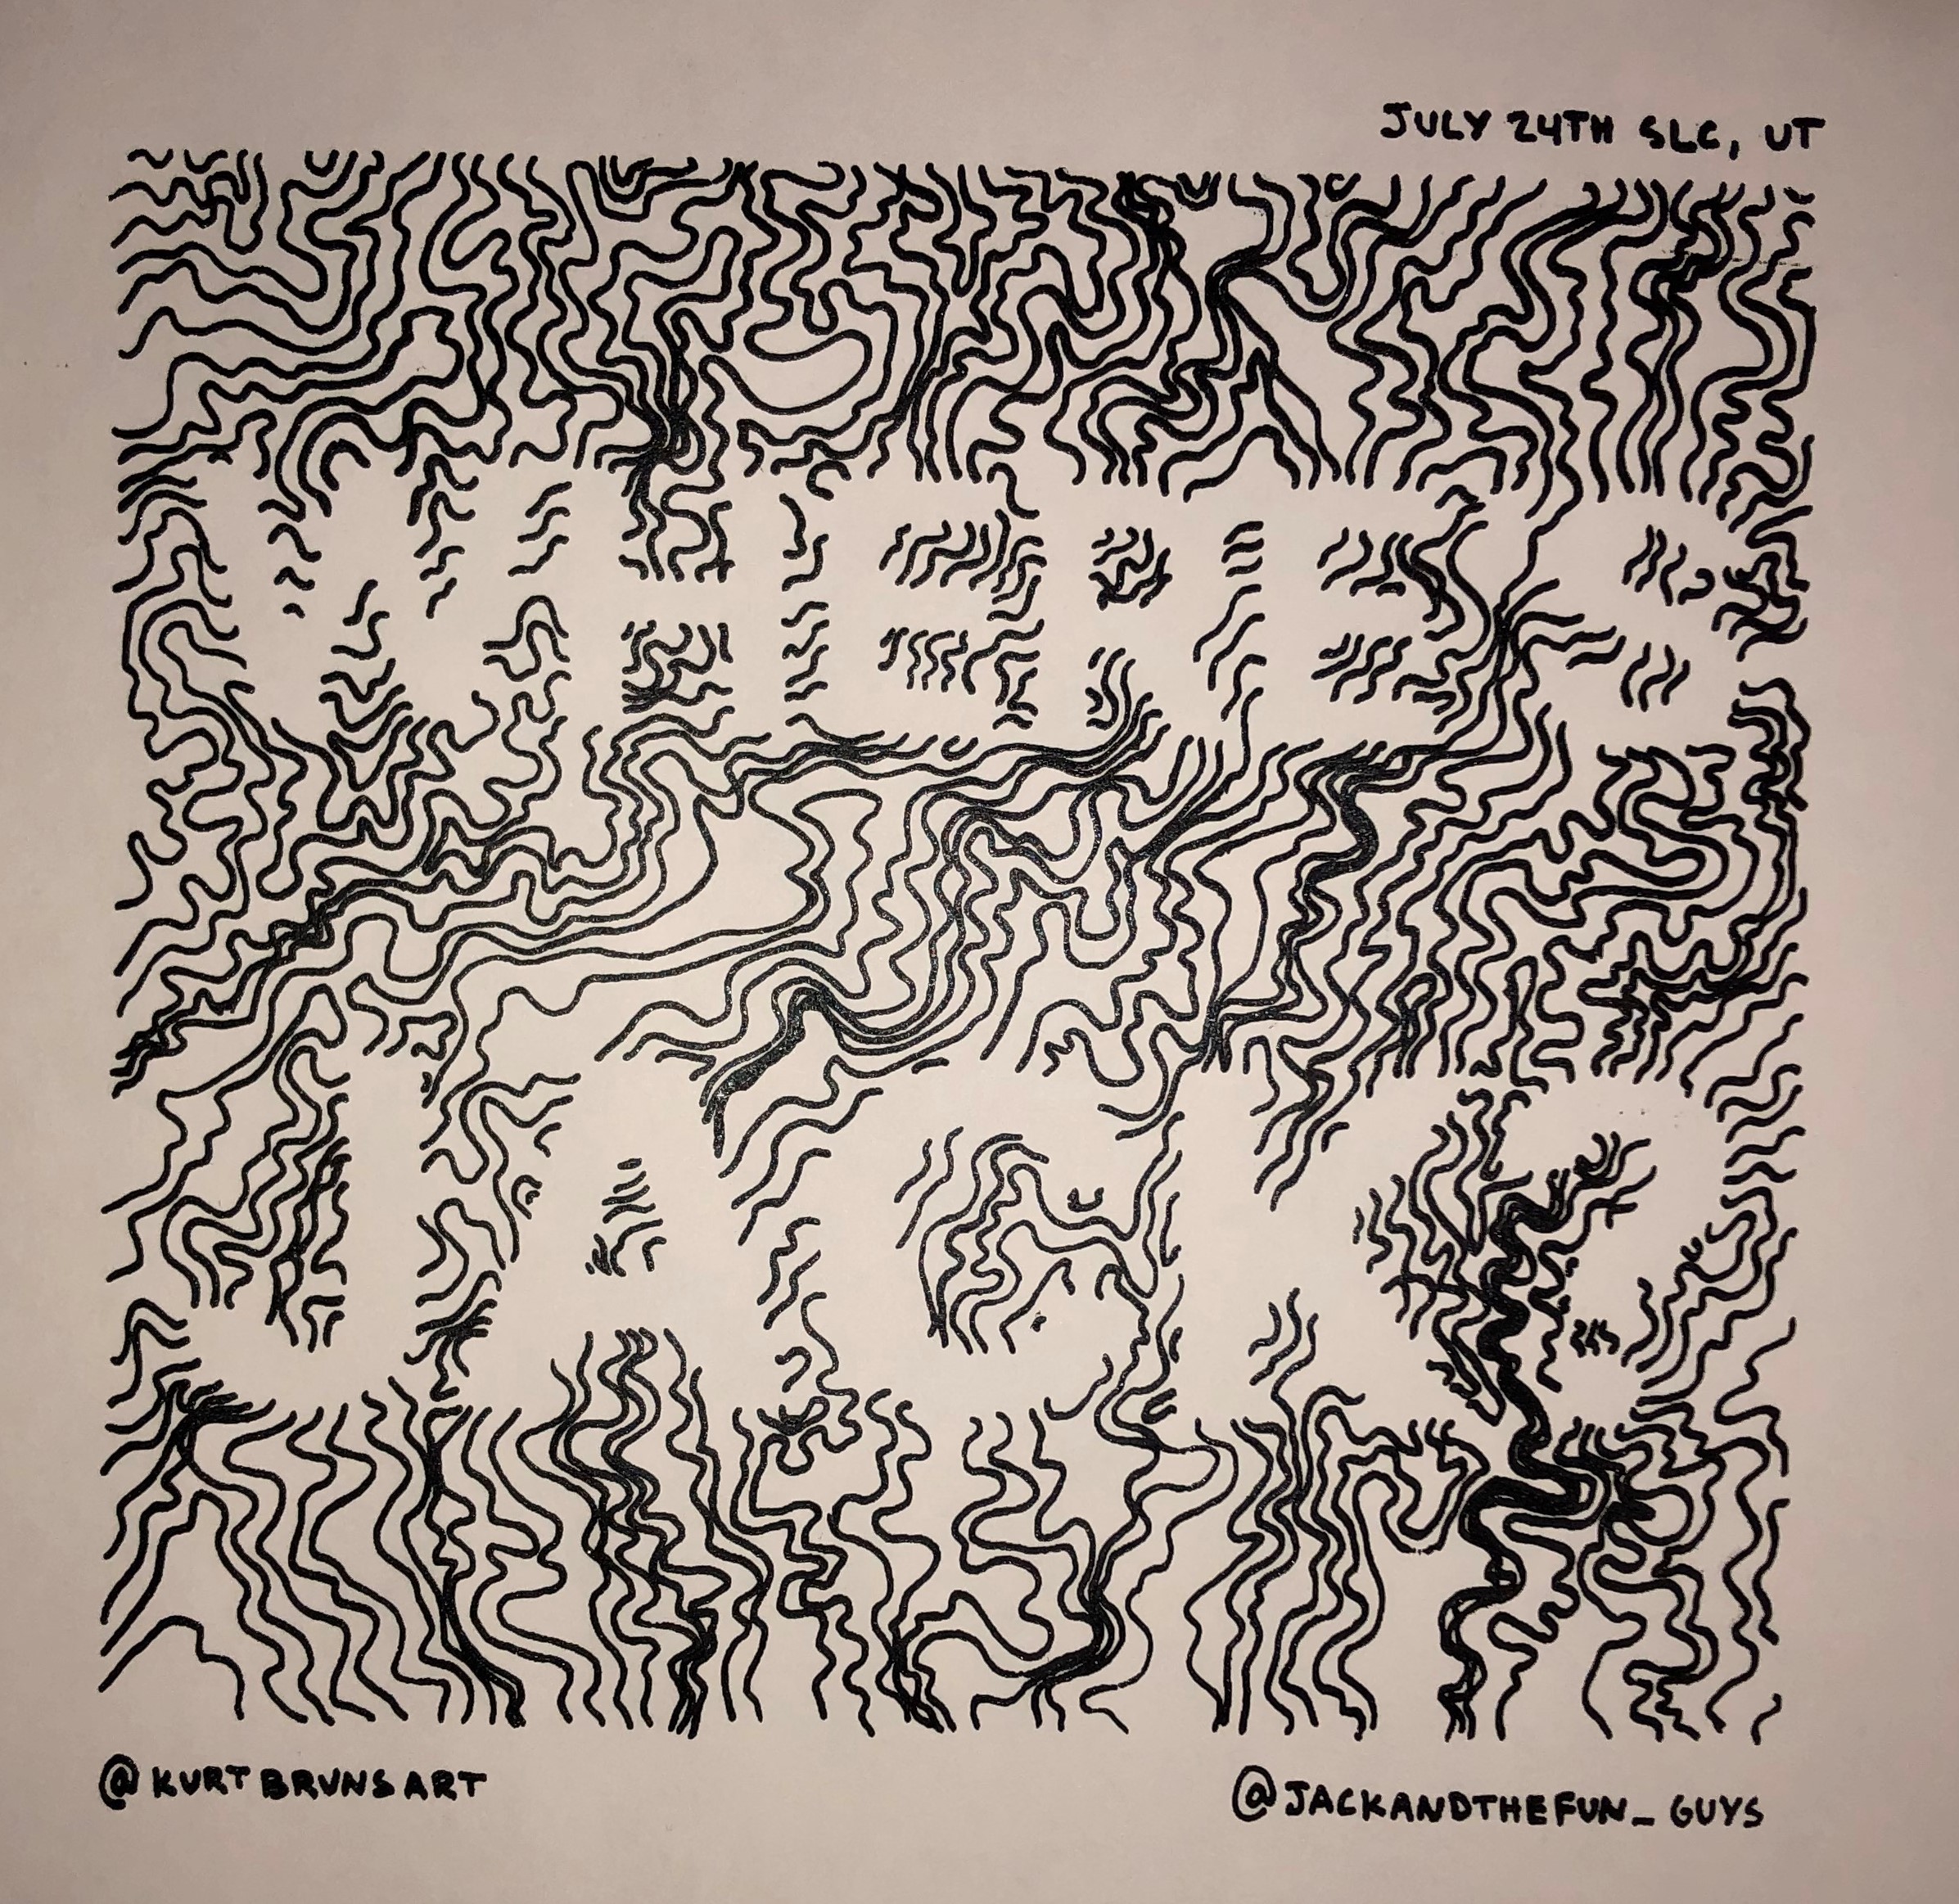 JULY 24TH SLC, UT
WHERE'S
JACK?
@KURTBRUNSART
@JACKANDTHEFUN_GUYS